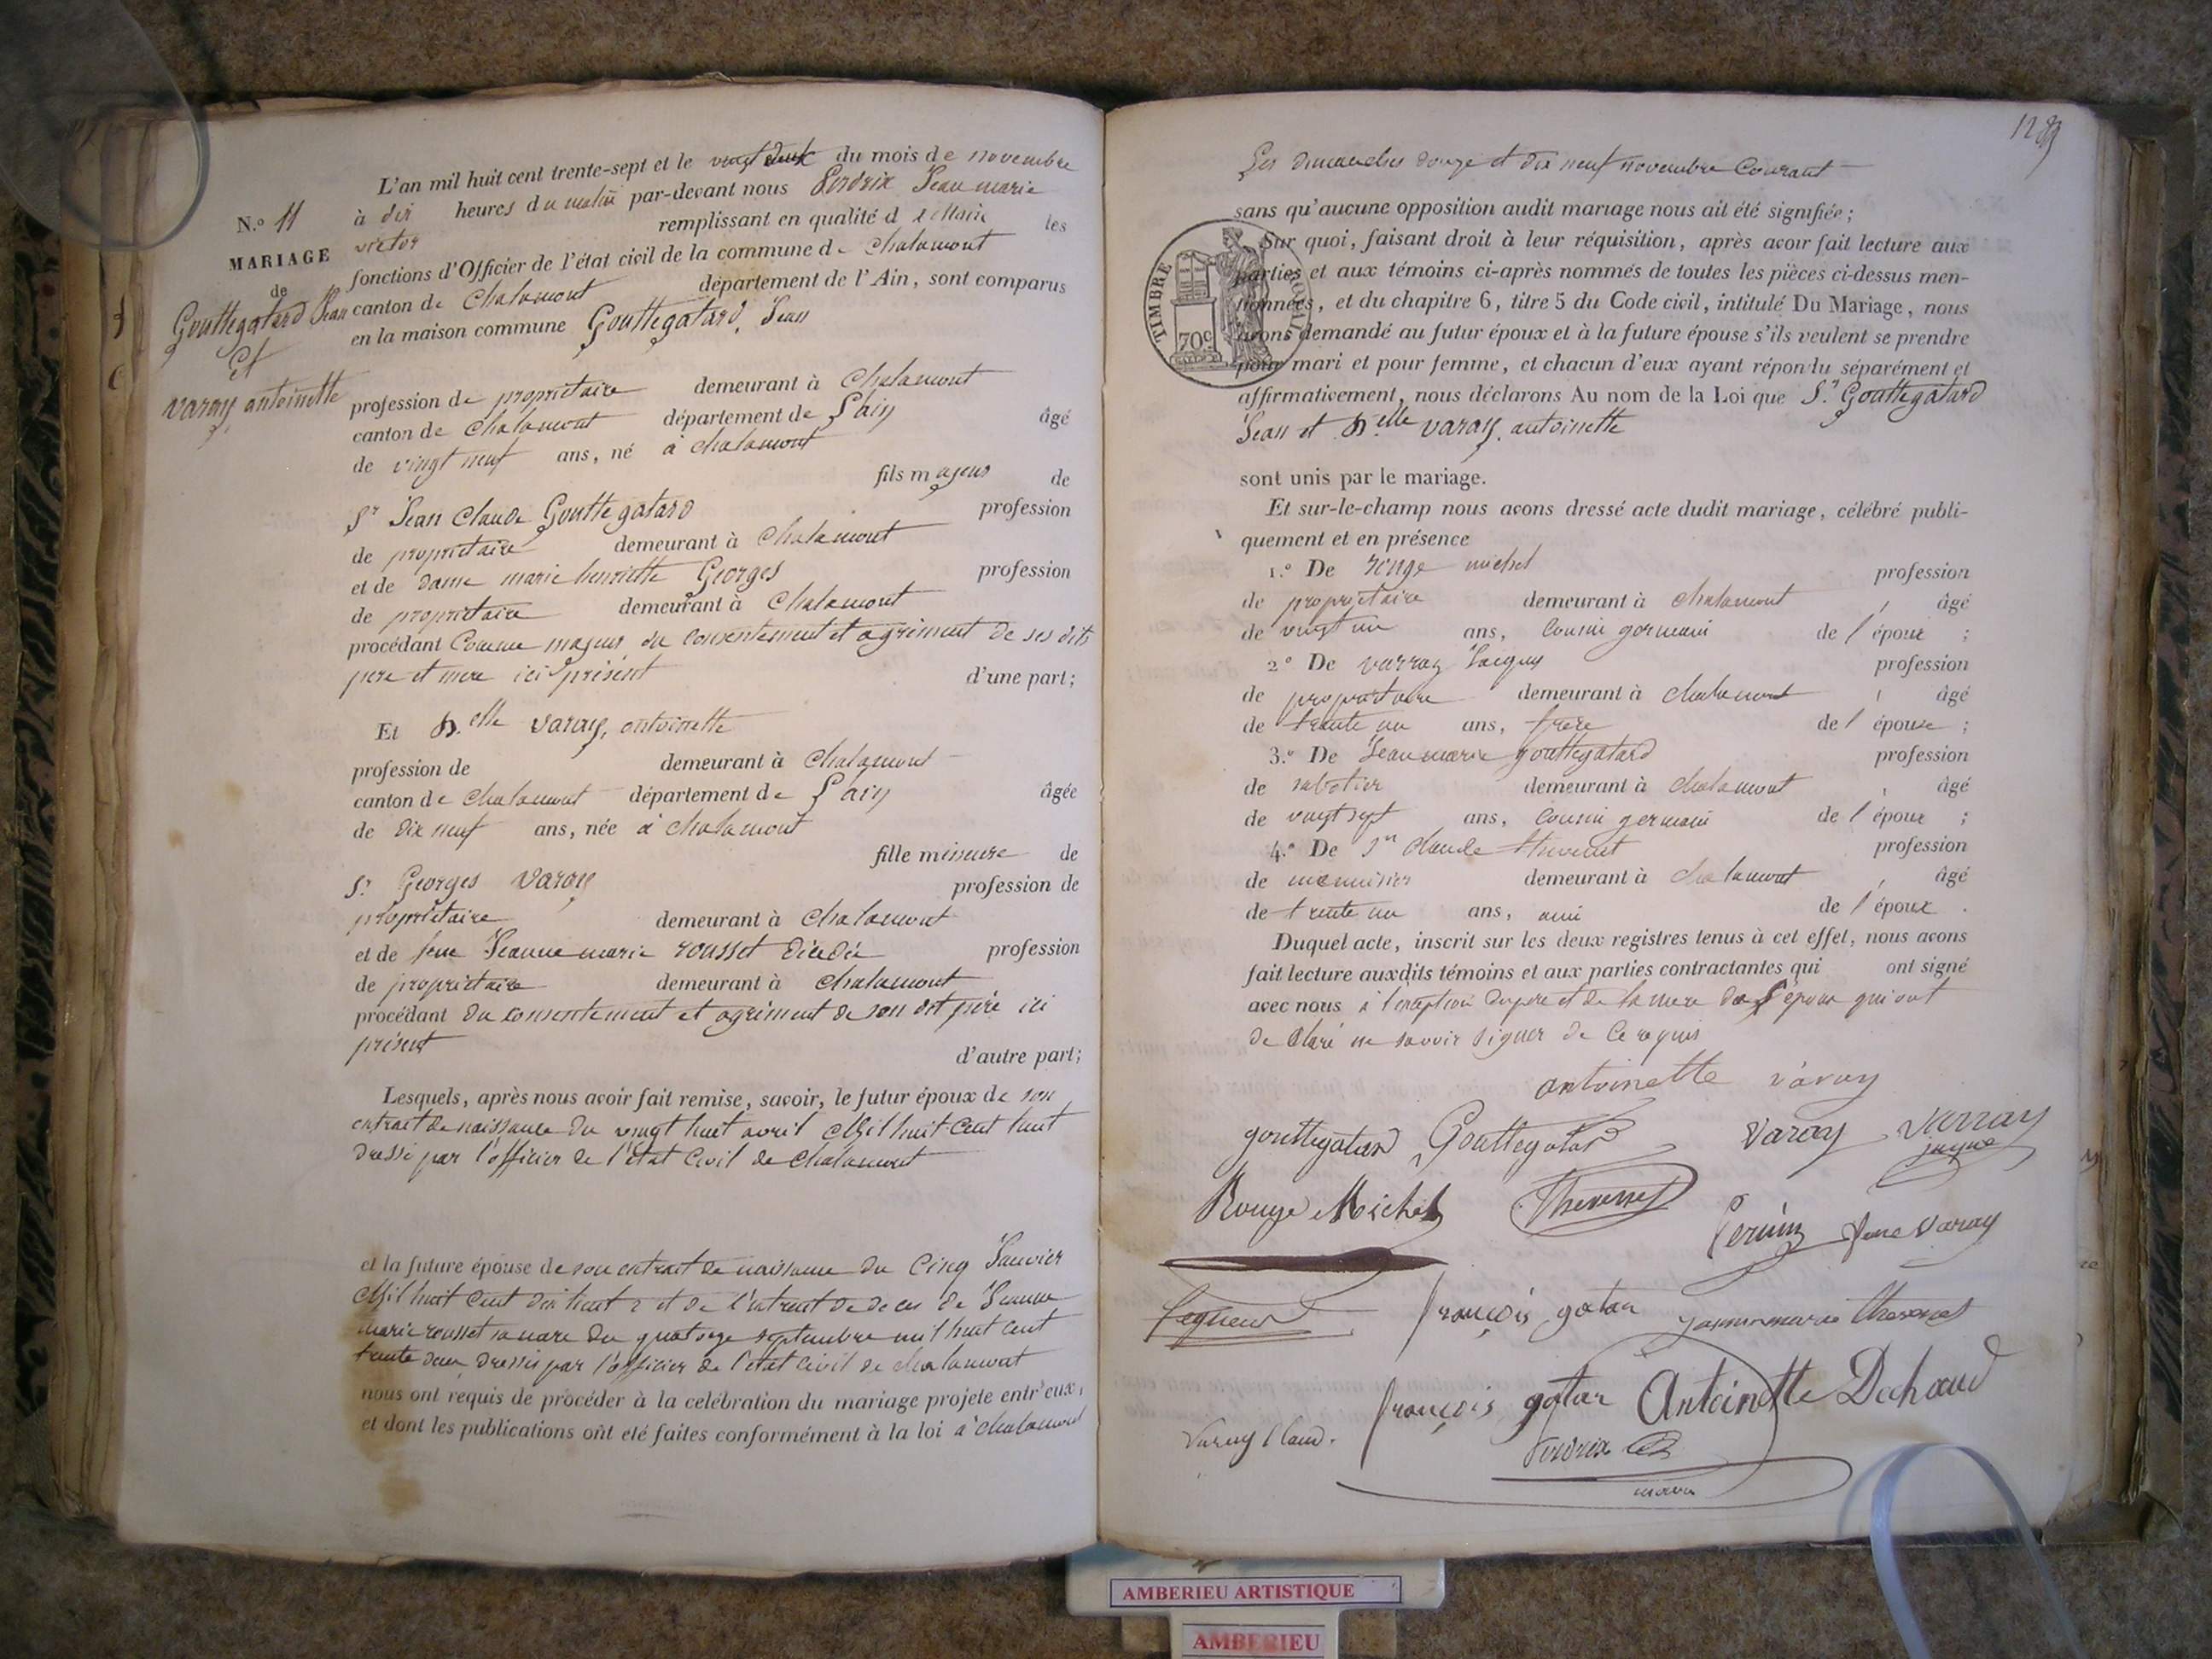 N.º 11
MARIAGE
de
Gouttegatard Jean
Et
varay antoinette
L'an mil huit cent trente-sept et le vingt deux du mois de novembre
à dix heures du matin par-devant nous Perdrix Jean marie
victor remplissant en qualité de Maire les
fonctions d'Officier de l'état civil de la commune de Chalamont
canton de Chalamont département de l'Ain, sont comparus
en la maison commune Gouttegatard, Jean
profession de propriétaire demeurant à Chalamont
canton de Chalamont département de L'ain âgé
de vingt neuf ans, né à chalamont
fils majeur de
Sr Jean Claude Gouttegatard profession
de propriétaire demeurant à Chalamont
et de dame marie henriette Georges profession
de propriétaire demeurant à Chalamont
procédant Comme majeur du consentement et agriment de ses dits
pere et mere ici présent d'une part;
Et D.elle varay, antoinette
profession de demeurant à Chalamont
canton de Chalamont département de L'ain âgée
de dix neuf ans, née à chalamont
fille mineure de
Sr Georges varay profession de
propriétaire demeurant à Chalamont
et de feue Jeanne marie rousset décédée profession
de propriétaire demeurant à chalamont
procédant du consentement et agriment de son dit père ici
présent d'autre part;
Lesquels, après nous avoir fait remise, savoir, le futur époux de son
extrait de naissance du vingt huit avril Mil huit Cent huit
dressé par l'officier de l'état Civil de Chalamont
et la future épouse de son extrait de naissance du Cinq Janvier
Mil huit Cent dix huit et de l'extrait de deces de Jeanne
marie rousset sa mere du quatorze septembre mil huit cent
trente deux dressés par l'officier de l'état civil de chalamont
nous ont requis de procéder à la celébration du mariage projeté entr'eux,
et dont les publications ont été faites conformément à la loi à chalamont
Les dimanches douze et dix neuf novembre Courant
sans qu'aucune opposition audit mariage nous ait été signifiée;
Sur quoi, faisant droit à leur réquisition, après avoir fait lecture aux
parties et aux témoins ci-après nommés de toutes les pièces ci-dessus men-
tionnées, et du chapitre 6, titre 5 du Code civil, intitulé Du Mariage, nous
avons demandé au futur époux et à la future épouse s'ils veulent se prendre
pour mari et pour femme, et chacun d'eux ayant répondu séparément et
affirmativement, nous déclarons Au nom de la Loi que Sr Gouttegatard
Jean et D.elle varay, antoinette
TIMBRE ROYAL
70c
sont unis par le mariage.
Et sur-le-champ nous avons dressé acte dudit mariage, célébré publi-
quement et en présence
1.º De rouge michel profession
de propriétaire demeurant à chalamont, âgé
de vingt un ans, cousin germain de l'époux ;
2º De varray Jacques profession
de propriétaire demeurant à chalamont, âgé
de trente un ans, frère de l'épouse ;
3.º De Jean marie gouttegatard profession
de sabotier demeurant à chalamont, âgé
de vingt sept ans, cousin germain de l'époux ;
4.º De Jn claude thevenet profession
de menuisier demeurant à chalamont, âgé
de trente un ans, ami de l'époux .
Duquel acte, inscrit sur les deux registres tenus à cet effet, nous avons
fait lecture auxdits témoins et aux parties contractantes qui ont signé
avec nous à l'exception du pere et de la mere de l'époux qui ont
de Claré ne savoir signer de Ce requis
antoinette varay
gouttegatar Gouttegatar varay varray
jaque
Rouge Michel Thevenet
Perrin feue varay
françois gatar jeannemarie thevenet
françois gatar Antoinette Dechaud
varay Claud.
Perdrix
maire
AMBERIEU ARTISTIQUE
AMBERIEU